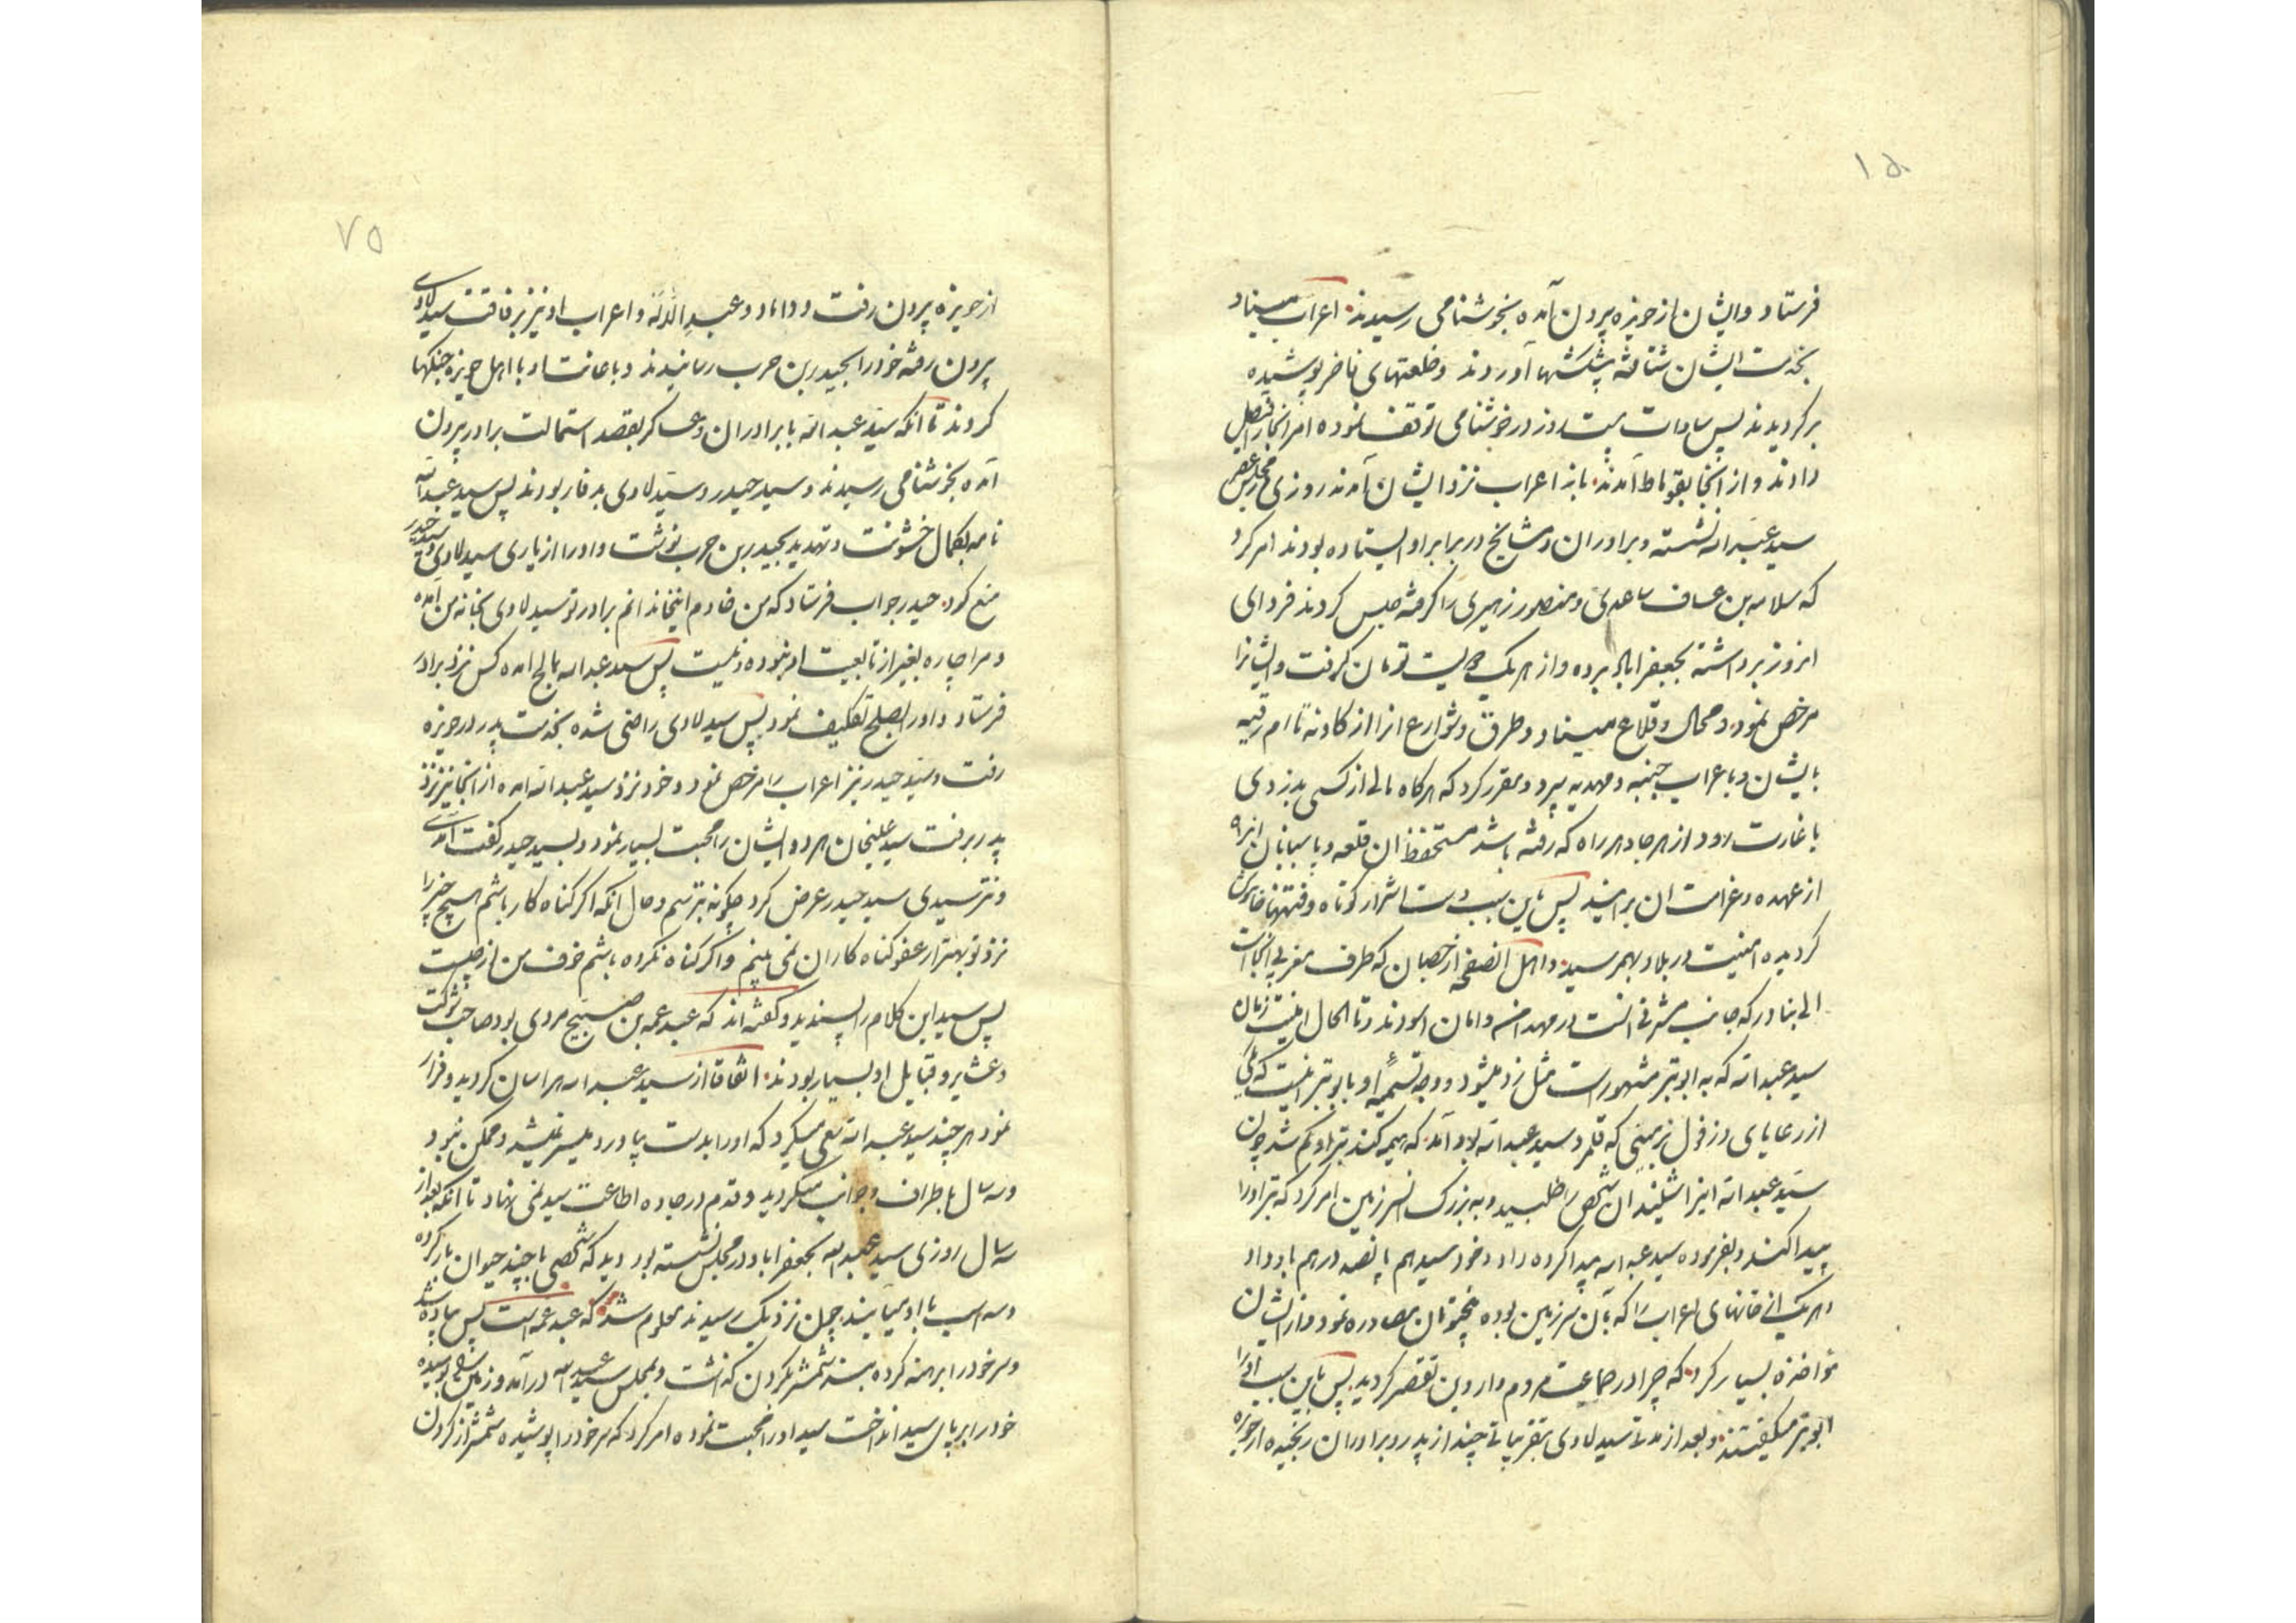 فرستاد و ایشان از حویزه بیرون آمده بخوشنامی رسیدند اعراب میناو
بخدمت ایشان شتافته پیشکشها آوردند و خلعتهای فاخر پوشیده
برگردیدند پس سادات بیست روز در خوشنامی توقف نموده امر انجا را فیصل
دادند و از انجا بقوماط آمدند باز اعراب نزد ایشان آمدند روزی در مجلس
سید عبد الله نشسته و برادران و مشایخ در برابر او ایستاده بودند امر کرد
که سلامه بن عساف ساعدی و منصور زهیری را گرفته حبس کردند فردای
انروز برداشته بجعفراباد برده و از هر یک دویست تومان گرفت و ایشانرا
مرخص نمود و محال و قلاع میناو و طرق و شوارع انرا از کاونه تا ام رقیه
بایشان و باعراب و مهدیه سپرد و مقرر کرد که هرکاه مالی از کسی بدزدی
یا غارت رود از هر جا و هر راه که رفته باشد مستحفظ ان قلعه و پاسبانان انراه
از عهده و غرامت ان برآیند پس باین سبب دست اشرار کوتاه و فتنها خاموش
گردیده امنیت در بلاد بهم رسید و اهل انصفحه از خصبان که طرف مغربی انجاست
الی بنادر که جانب مشرقی انست در مهد امن و امان اسودند و تا الحال امنیت زمان
سید عبد الله که به ابو تبر مشهور است مثل زد میشود و وجه تسمیه او بابو تبر اینست که یکی
از رعایای دزفول بزمینی که قلمرو سید عبد الله بود آمد که هیمه کند تبر او کم شد چون
سید عبد الله اینرا شنید ان شخص را طلبید و به بزرگ انسرزمین امر کرد که تبر او را
پیدا کند و بفرموده سید عبد الله پیدا کرده داد و خود سید هم پانصد درهم باو داد
و هر یک از خانهای اعراب را که بآن سرزمین بوده پنجتومان مصادره نمود و از ایشان
مواخذه بسیار کرد که چرا در حمایت مردم وارد‌ین تقصیر کردید پس باین سبب او را
ابو تبر میگفتند و بعد از مدتی سید لاوی بتقریباتی چند از پدر و برادران رنجیده از حویزه
۷۵
از حویزه بیرون رفت و داماد و عبد الله و اعراب او نیز برفاقت سید لاوی
بیرون رفته خود را بحیدر بن حرب رسانیدند و باعانت او با اهل حویزه جنگها
کردند تا انکه سید عبد الله با برادران و عساکر بقصد استمالت برادر بیرون
آمده بخوشنامی رسیدند و سید حیدر و سید لاوی بدفار بودند پس سید عبد الله
نامه بکمال خشونت و تهدید بحیدر بن حرب نوشت و او را از یاری سید لاوی و سید حیدر
منع کرد حیدر جواب فرستاد که من خادم اینخاندانم برادر تو سید لاوی بخانه من آمده
و مرا چاره بغیر از تابعیت او نبوده و نیست پس سید عبد الله بمالح امده کس نزد برادر
فرستاد و او را بصلح تکلیف نمود پس سید لاوی راضی شده بخدمت پدر در حویزه
رفت و سید حیدر نیز اعراب را مرخص نمود و خود نزد سید عبد الله امده از انجا نیز نزد
پدر برفت سید علیخان هر دو ایشان را محبت بسیار نمود و بسید حیدر گفت آمدی
و نترسیدی سید حیدر عرض کرد چگونه بترسم و حال انکه اگر گناه کار باشم هیچ چیز را
نزد تو بهتر از عفو گناه کاران نمی بینم و اگر گناه نکرده باشم خوف من از چیست
پس سید این کلام را پسندید و گفته اند که عبد عمه بن صبیح مردی بود صاحب شوکت
و عشایر و قبایل او بسیار بودند اتفاقا از سید عبد الله هراسان گردید و فرار
نمود هر چند سید عبد الله سعی میکرد که او را بدست بیاورد میسر نمیشد و ممکن نبود
و سه سال باطراف و جوانب میگردید و قدم در جاده اطاعت سید نمی نهاد تا انکه بعد از
سه سال روزی سید عبد الله بجعفراباد در مجلس نشسته بود دید که شخصی با چند حیوان بار کرده
و سه اسب با او میآیند چون نزدیک رسیدند معلوم شد که عبد عمه است پس پیاده شد
و سر خود را برهنه کرده شمشیر بگردن گذاشت و بمجلس سید عبد الله درآمد و زمین بوسیده
خود را بر پای سید انداخت سید او را محبت نموده امر کرد که سر خود را پوشیده شمشیر از گردن